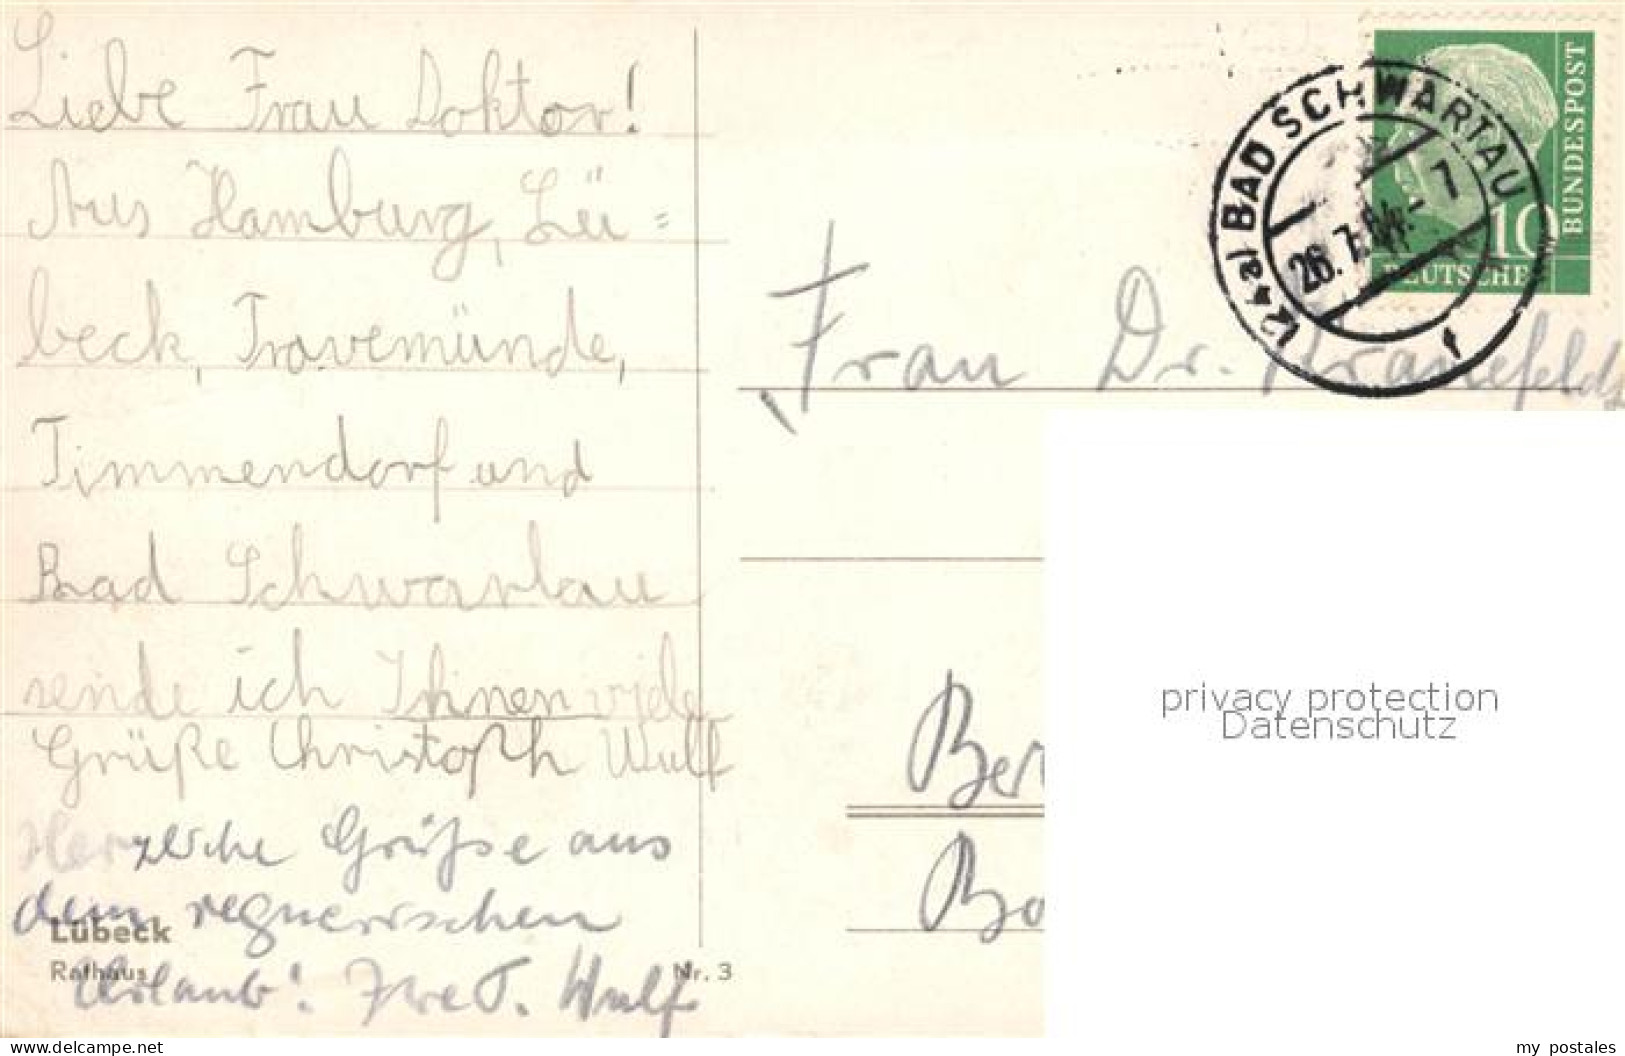 Liebe Frau Doktor!
Aus Hamburg, Lü=
beck, Travemünde,
Timmendorf und
Bad Schwartau
sende ich Ihnen viele
Grüße Christoph Wulf
Herzliche Grüße aus
dem regnerischen
Urlaub! Ihre T. Wulf
Lübeck
Rathaus
Nr. 3
BAD SCHWARTAU
26.7.
7
f
10
DEUTSCHE
BUNDESPOST
Frau Dr. Kranefeld
Ber
Bo
privacy protection
Datenschutz
www.delcampe.net
my_postales